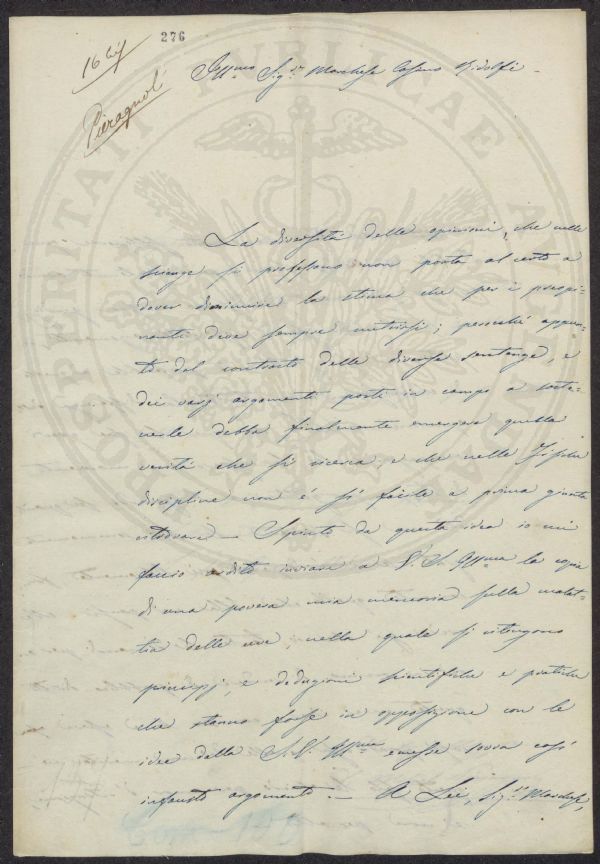 276
Pieragnoli
Illmo Sigr Marchese Cosimo Ridolfi
La diversità delle opinioni, che nelle
scienze si professano non porta al certo a
dover diminuire la stima che per i
deve sempre nutrirsi; perocché appun-
to dal contrasto delle diverse sentenze, e
dei varj argomenti posti in campo a soste-
nerle debba finalmente emergere quella
verità che si ricerca, e che nelle fisiche
discipline non è sì facile a prima giunta
ritrovare — Spinto da questa idea io mi
faccio ardito inviare a V. S. Illma la copia
di una povera mia memoria sulla malat-
tia delle uve, nella quale si ritengono
principj, e deduzioni scientifiche e pratiche
che stanno forse in opposizione con le
idee della S. V. Illma emesse sovra così
infausto argomento. — A Lei, Sigr Marchese,
PROSPERITATI PUBLICAE AUGENDAE